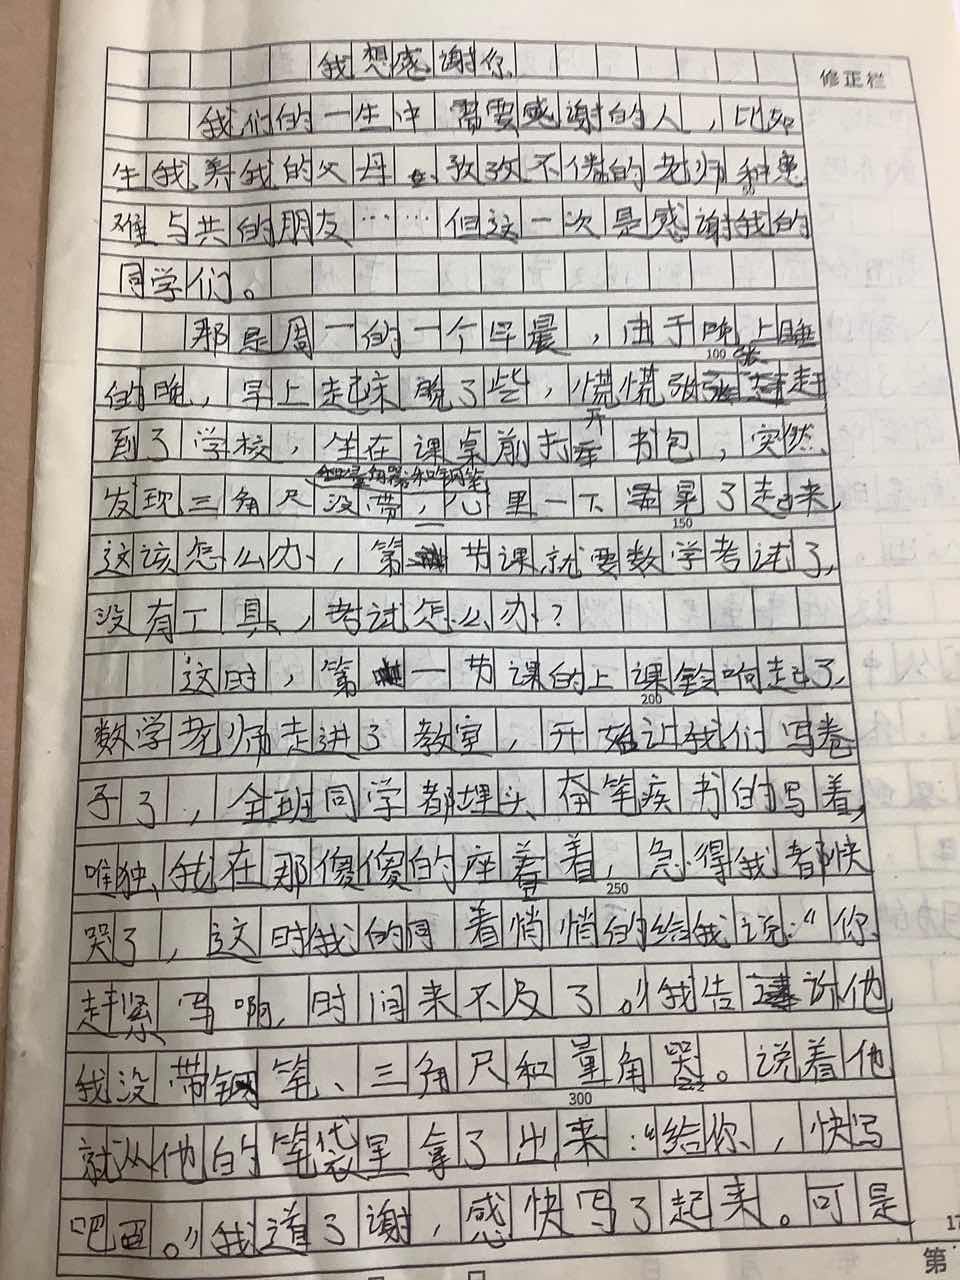 我想感谢你
修正栏
我们的一生中需要感谢的人，比如
生我养我的父母、孜孜不倦的老师和患
难与共的朋友……但这一次是感谢我的
同学们。
那是周一的一个早晨，由于晚上睡
100
的晚，早上走起床晚了些，慌慌张张赶
到了学校，坐在课桌前打开书包，突然
和量角器和钢笔
发现三角尺没带，心里一下晃了起来，
150
这该怎么办，第一节课就要数学考试了，
没有工具，考试怎么办？
这时，第一节课的上课铃响起了，
200
数学老师走进了教室，开始让我们写卷
子了，全班同学都埋头奋笔疾书的写着，
唯独，我在那傻傻的座着，急得我都快
250
哭了，这时我的同着悄悄的给我说：“你
赶紧写啊，时间来不及了。”我告诉他
我没带钢笔、三角尺和量角器。说着他
300
就从他的笔袋里拿了出来：“给你，快写
吧。”我道了谢，感快写了起来。可是
17
第